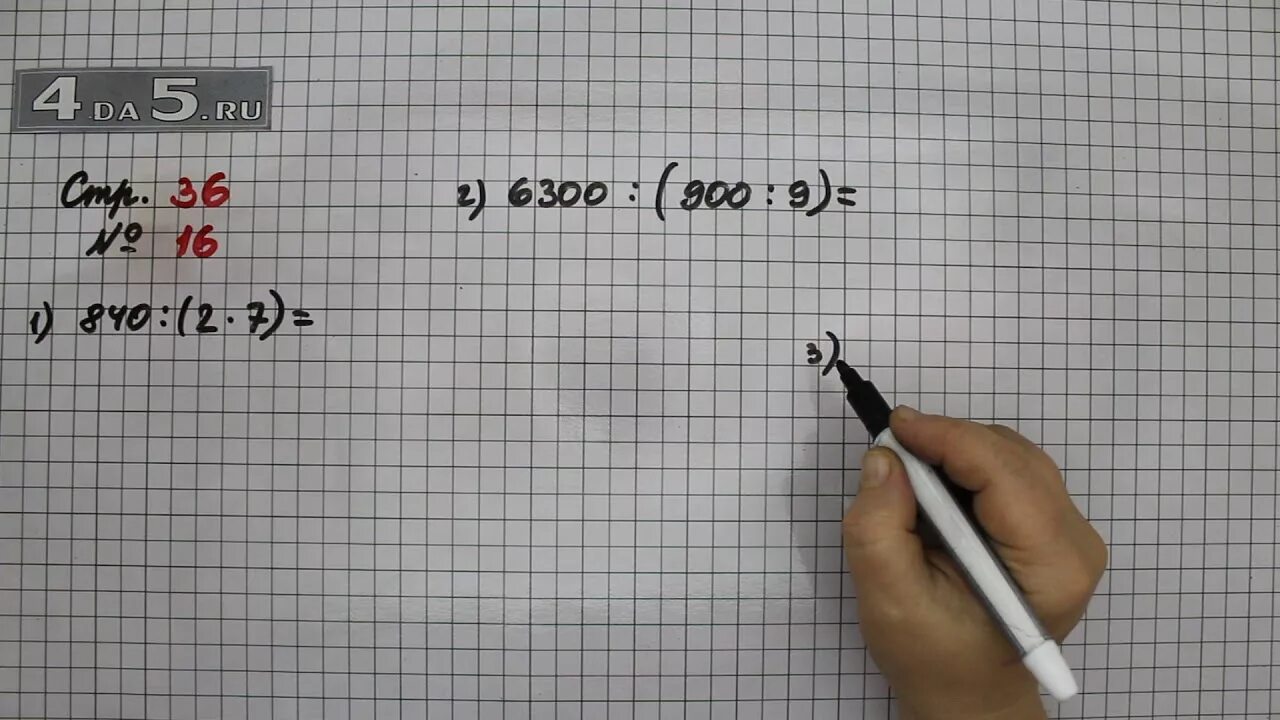 4DA5.RU
Стр. 36
№ 16
1) 840:(2·7)=
2) 6300:(900:9)=
3)